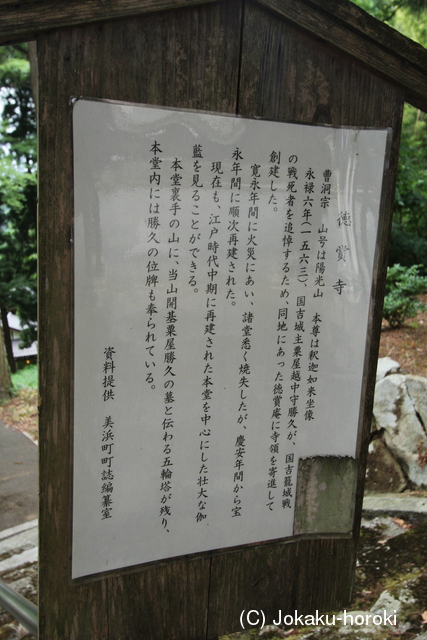 徳賞寺
曹洞宗　山号は陽光山　本尊は釈迦如来坐像
永禄六年(一五六三)、国吉城主粟屋越中守勝久が、国吉籠城戦
の戦死者を追悼するため、同地にあった徳賞庵に寺領を寄進して
創建した。
寛永年間に火災にあい、諸堂悉く焼失したが、慶安年間から宝
永年間に順次再建された。
現在も、江戸時代中期に再建された本堂を中心にした壮大な伽
藍を見ることができる。
本堂裏手の山に、当山開基粟屋勝久の墓と伝わる五輪塔が残り、
本堂内には勝久の位牌も奉られている。
資料提供　美浜町町誌編纂室
(C) Jokaku-horoki